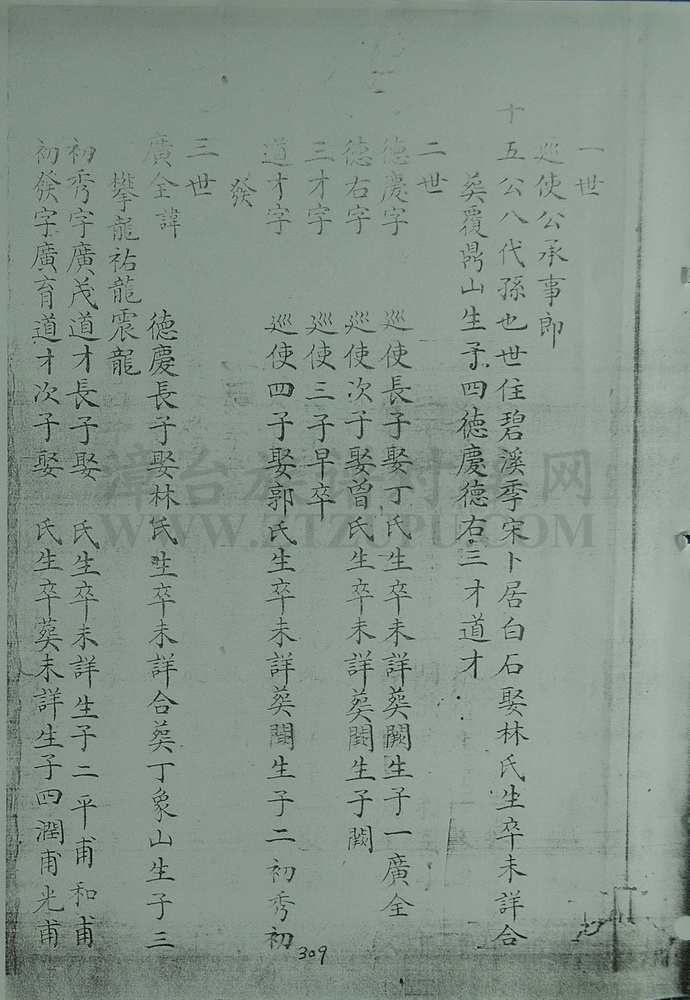 一世
巡使公承事郎
十五公八代孫也世住碧溪季宋卜居白石娶林氏生卒未詳合
葵覆鼎山生子四德慶德右三才道才
二世
德慶字 巡使長子娶丁氏生卒未詳葵闕生子一廣全
德右字 巡使次子娶曾氏生卒未詳葵闕生子闕
三才字 巡使三子早卒
道才字 巡使四子娶郭氏生卒未詳葵闕生子二初秀初
發
三世
廣全諱 德慶長子娶林氏生卒未詳合葵丁象山生子三
攀龍祐龍震龍
初秀字廣茂道才長子娶 氏生卒未詳生子二平甫和甫
初發字廣育道才次子娶 氏生卒葵未詳生子四潤甫光甫
309
漳台族谱对接网
WWW.ZTZUPU.COM